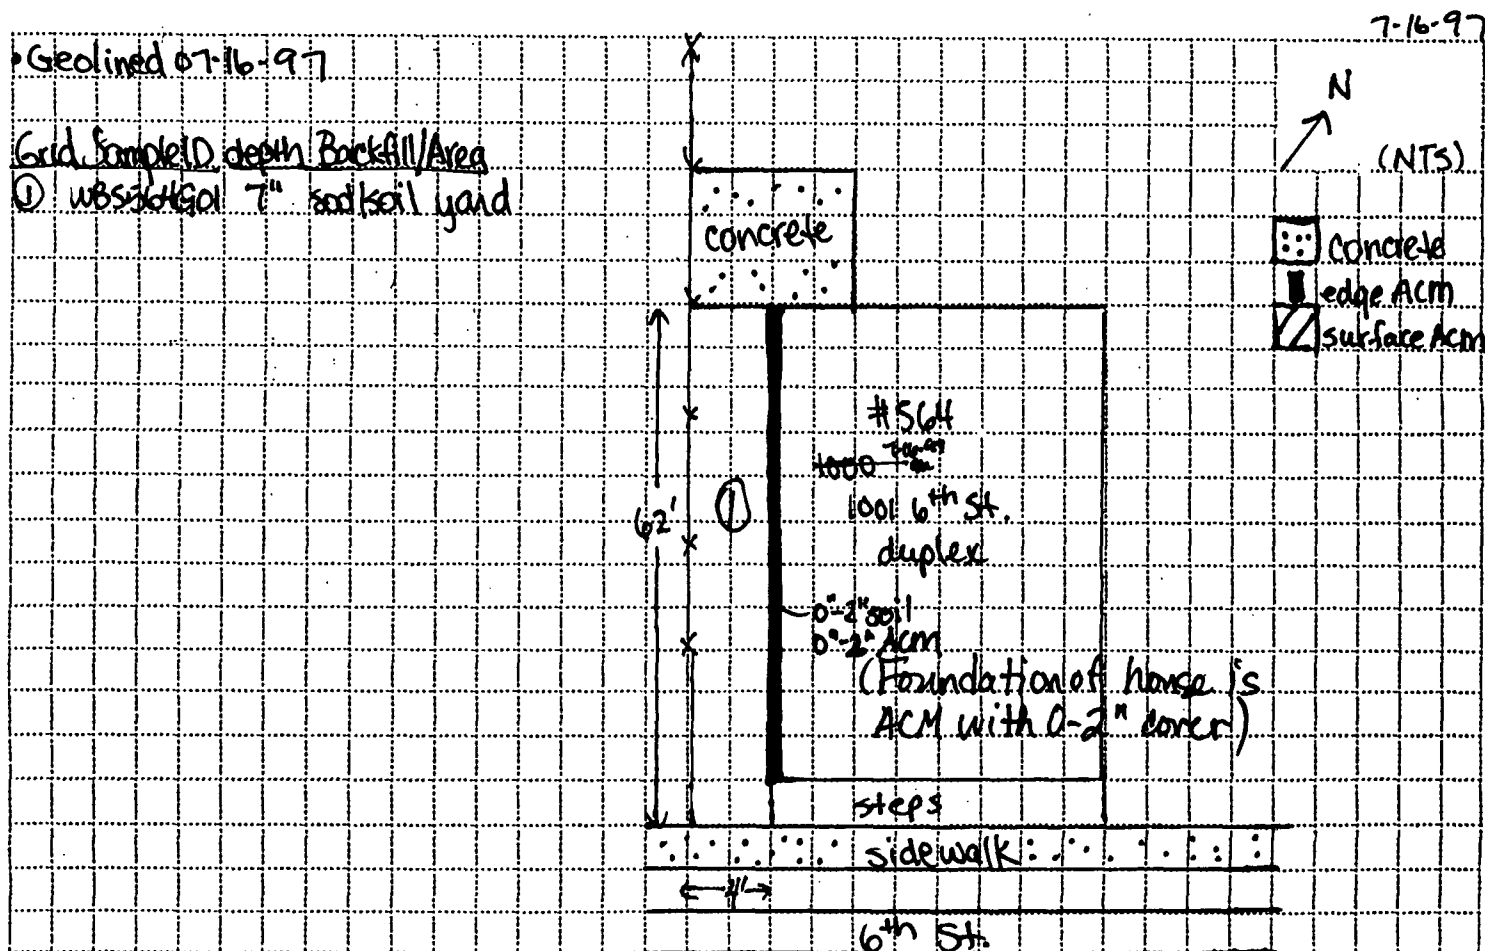 7-16-97
• Geolined 07-16-97
N
(NTS)
Grid SampleID depth Backfill/Area
① WBS564G01 7" sod/soil yard
concrete
concrete
edge ACM
surface ACM
#564
1000
1001 6th St.
duplex
62'
①
0"-2" soil
0"-2" ACM
(Foundation of house is
ACM with 0-2" cover)
steps
sidewalk
4'
6th St.